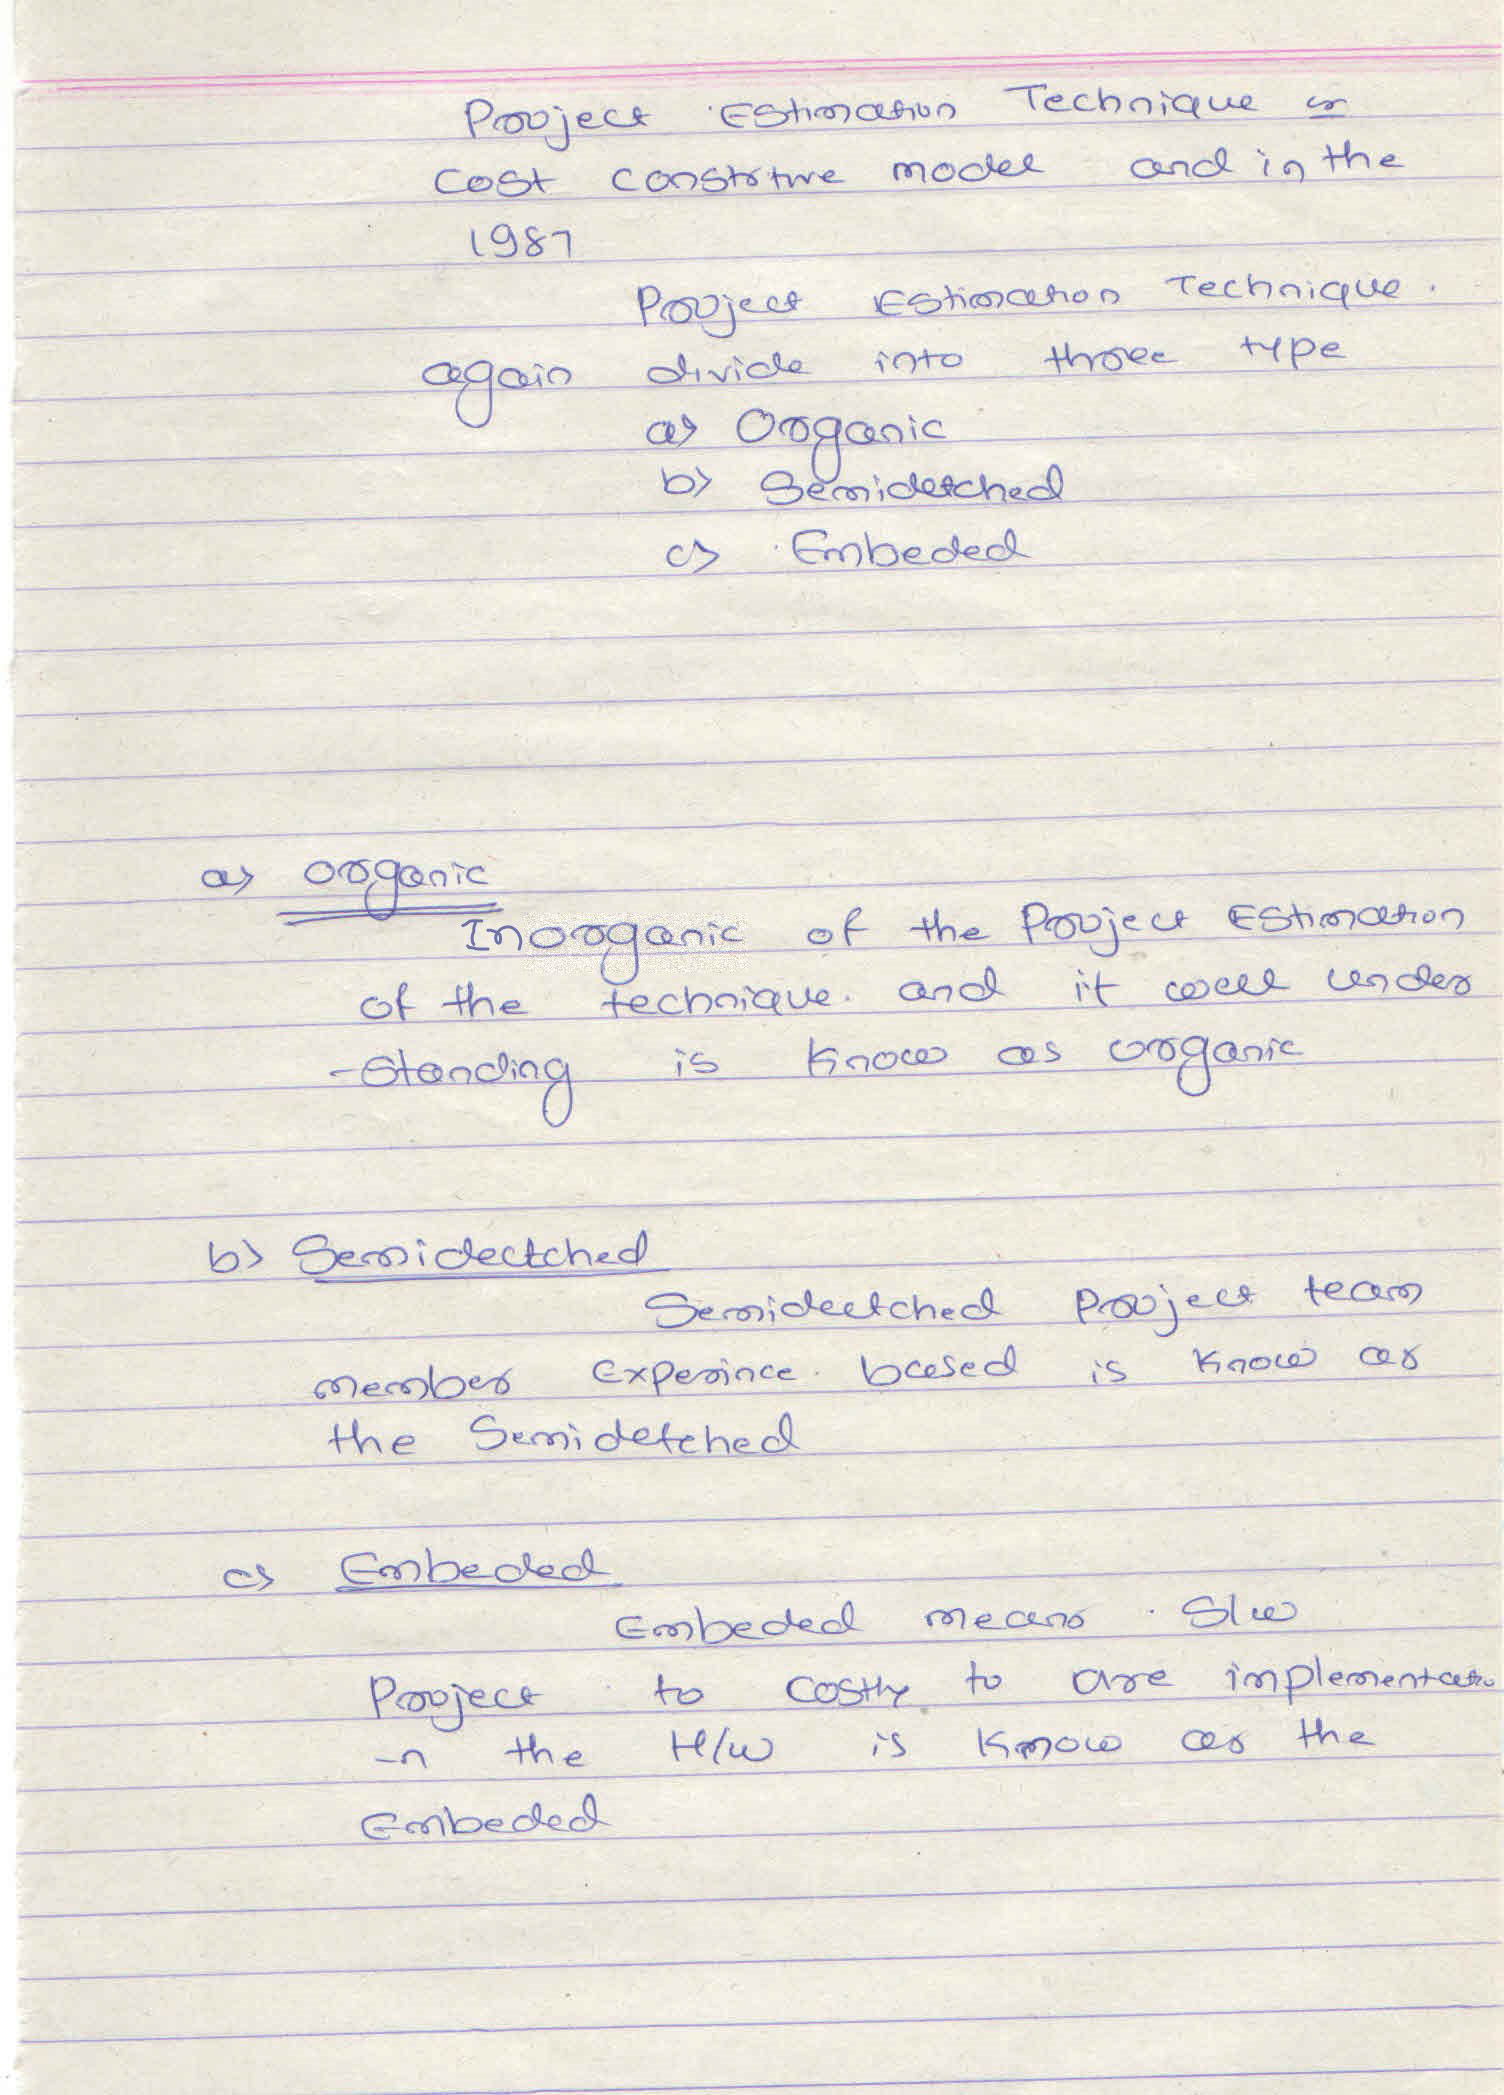 Project Estimation Technique or
cost constrtive model and in the
1987
Project Estimation Technique.
again divide into three type
a> Organic
b> Semidetched
c> Embeded
a> organic
Inorganic of the Project Estimation
of the technique. and it well under
-standing is know as organic
b> Semidectched
Semidectched Project team
member Experince. based is know as
the Semidetched
c> Embeded
Embeded means S/w
Project to costly to are implementatio
-n the H/w is know as the
Embeded